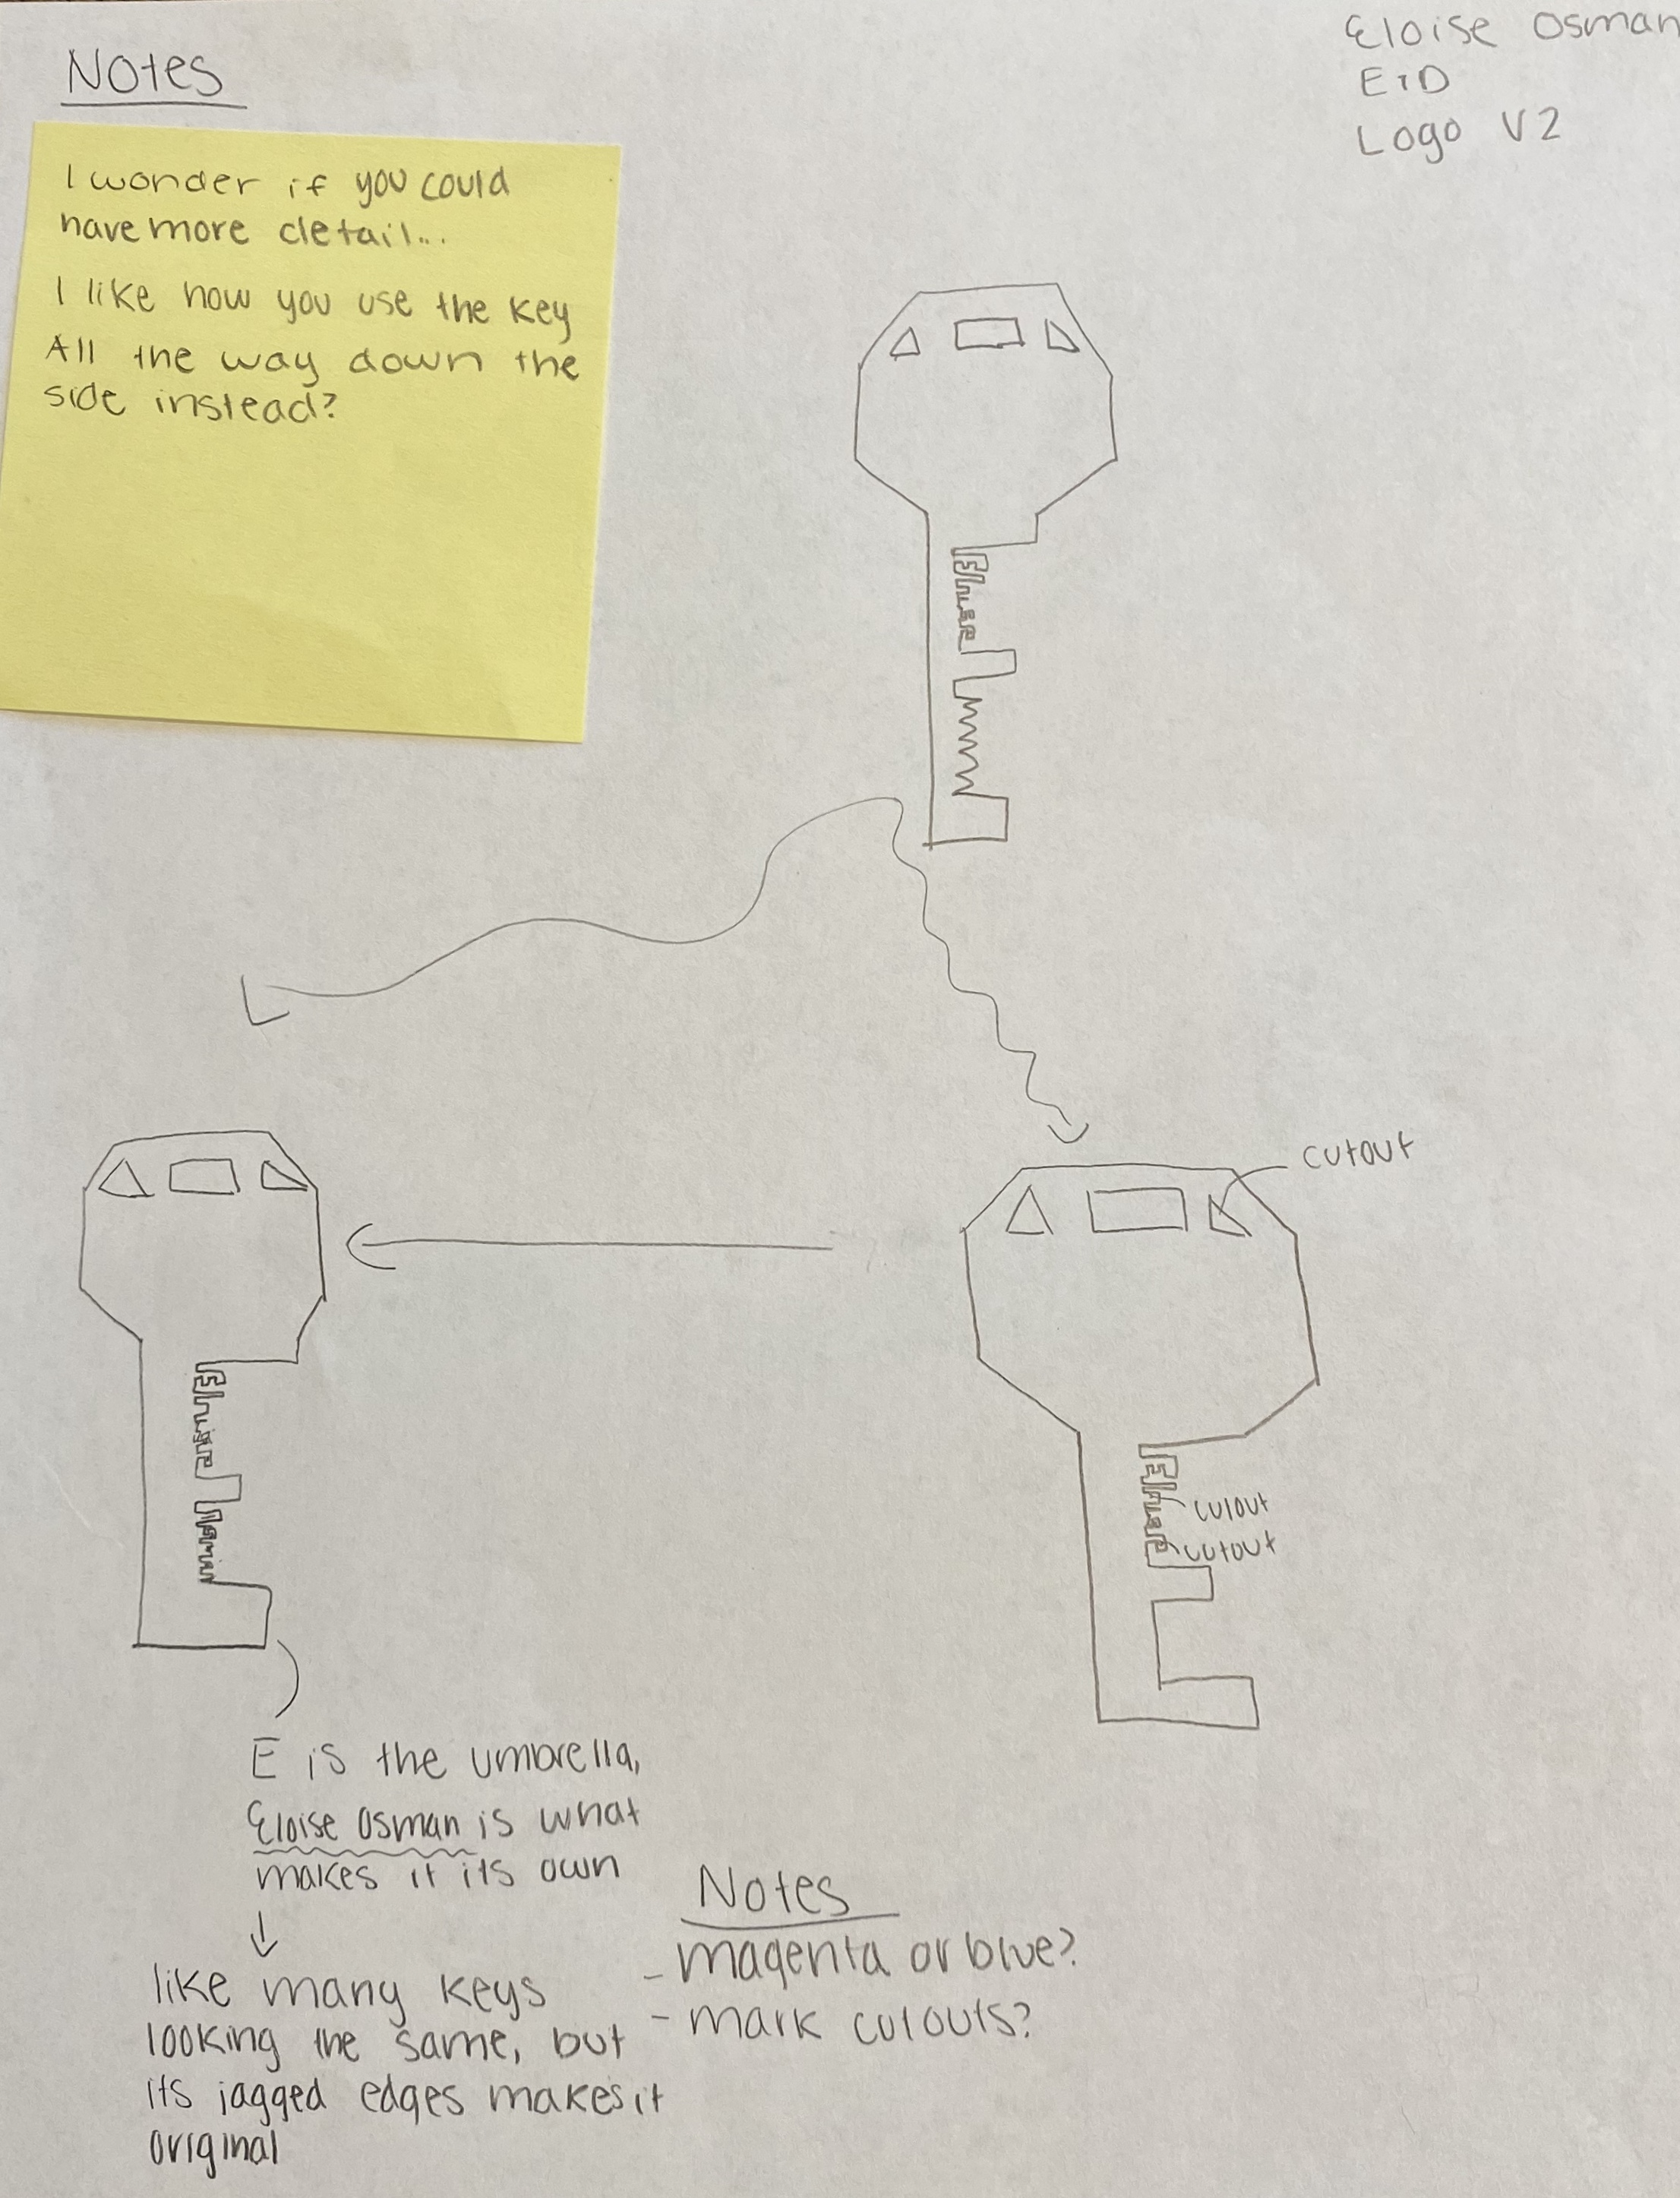 Notes
Eloise Osman
EID
Logo V2
I wonder if you could
have more detail...
I like how you use the key
All the way down the
side instead?
Eloise
cutout
Eloise
Osman
Eloise
cutout
cutout
E is the umbrella,
Eloise Osman is what
makes it its own
like many keys
looking the same, but
its jagged edges makes it
original
Notes
- magenta or blue?
- mark cutouts?